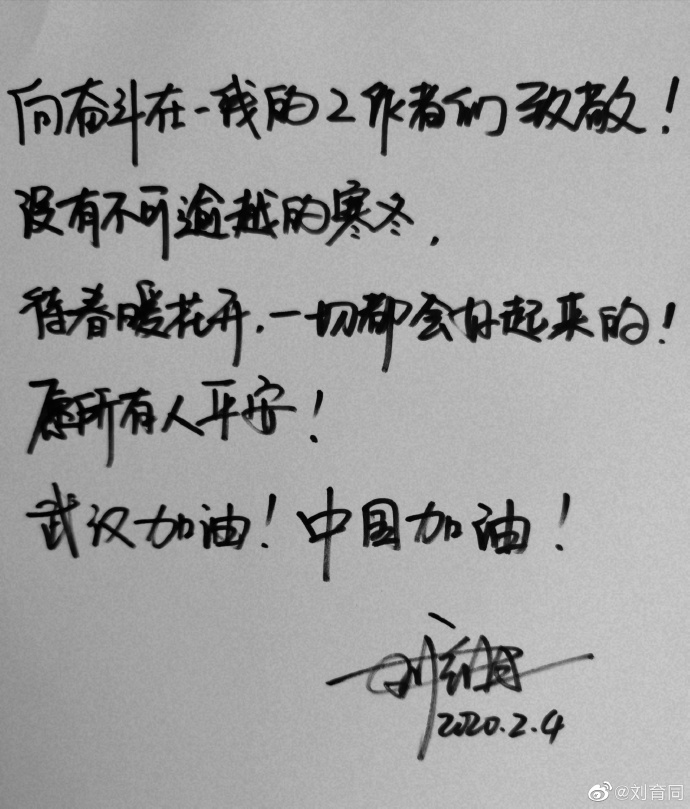 向奋斗在一线的工作者们致敬！
没有不可逾越的寒冬，
待春暖花开，一切都会好起来的！
愿所有人平安！
武汉加油！中国加油！
刘育同
2020.2.4
@刘育同